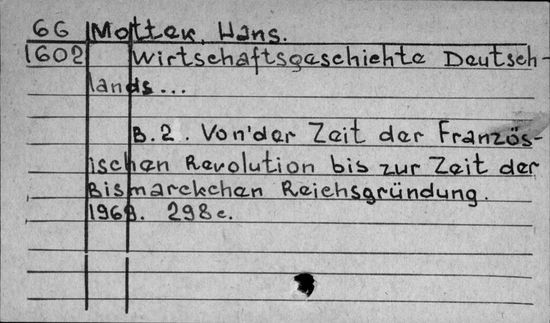 66 Mottek, Hans.
1602 Wirtschaftsgeschichte Deutsch-
lands...
B.2. Von der Zeit der Französ-
ischen Revolution bis zur Zeit der
Bismarckchen Reichsgründung.
1969. 298c.